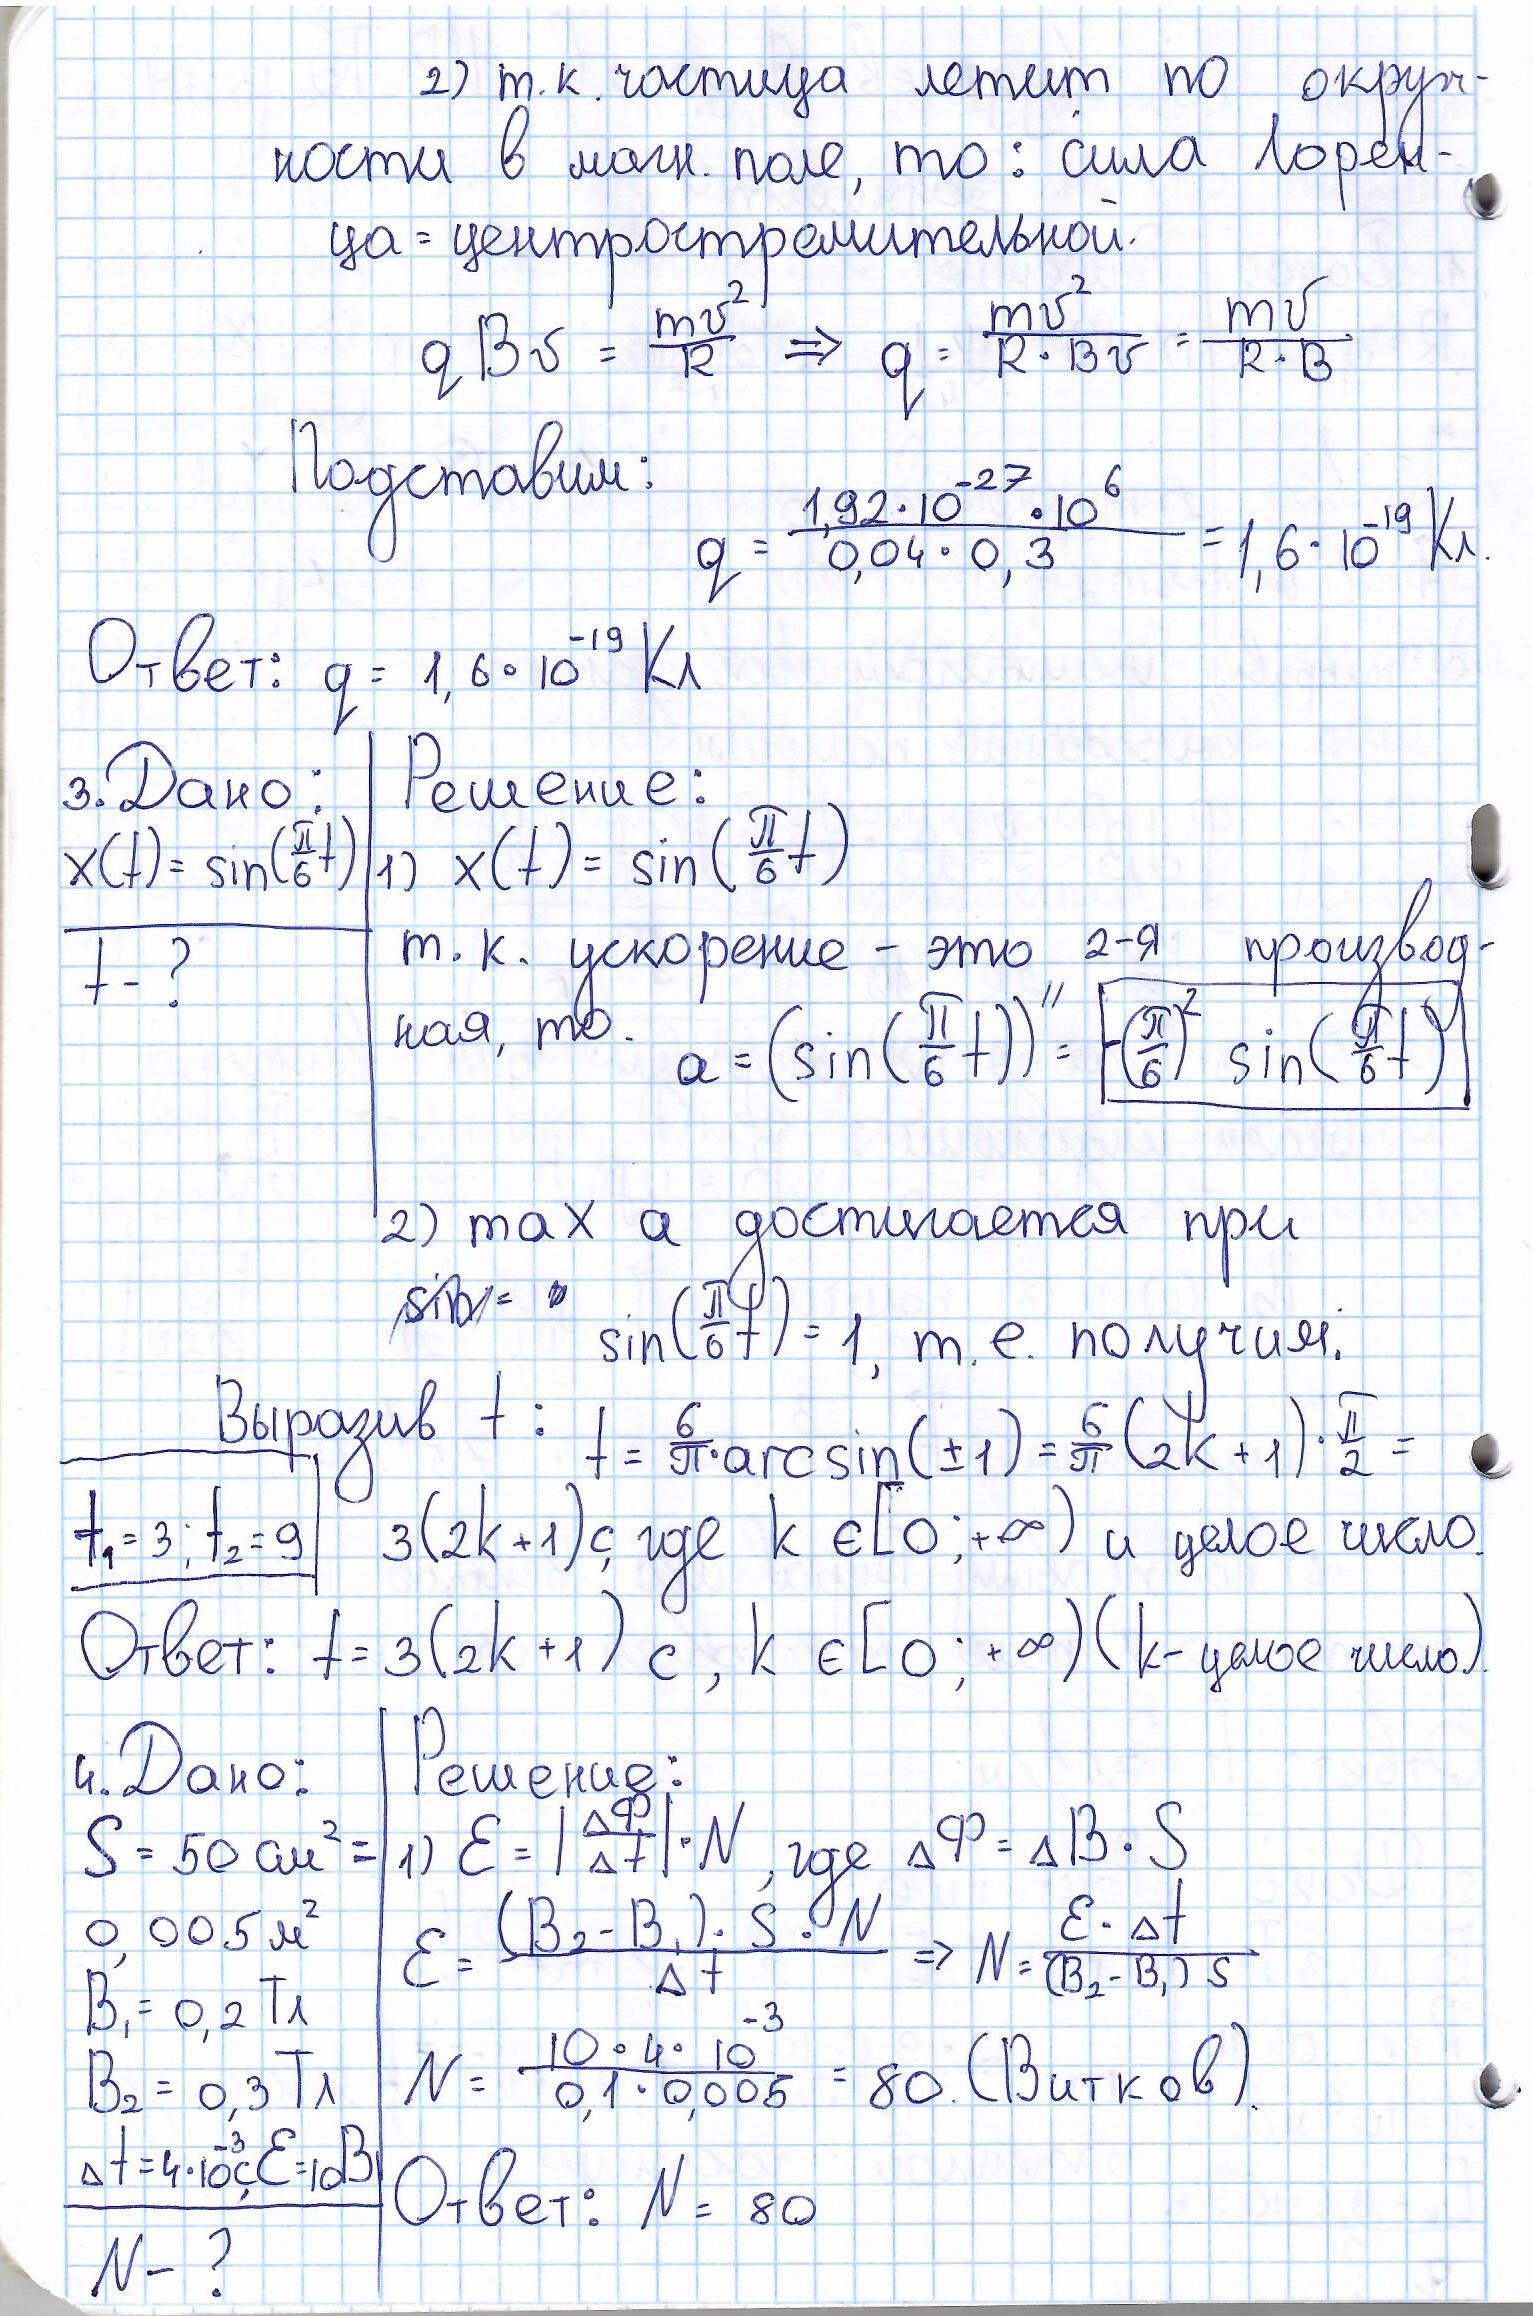 2) т.к. частица летит по окруж-
ности в магн. поле, то: сила Лорен-
ца = центростремительной.
qBv = mv²/R ⇒ q = mv²/(R·Bv) = mv/(R·B)
Подставим:
q = (1,92·10⁻²⁷·10⁶)/(0,04·0,3) = 1,6·10⁻¹⁹ Кл.
Ответ: q = 1,6·10⁻¹⁹ Кл
3. Дано:
x(t) = sin(π/6 t)
t - ?
Решение:
1) x(t) = sin(π/6 t)
т.к. ускорение - это 2-я производ-
ная, то.
a = (sin(π/6 t))'' = -(π/6)² sin(π/6 t)
2) max a достигается при
sin(π/6 t) = 1, т.е. получим:
Выразив t: t = 6/π·arcsin(±1) = 6/π(2k+1)·π/2 =
3(2k+1)с, где k ∈ [0; +∞) и целое число.
t₁ = 3; t₂ = 9
Ответ: t = 3(2k+1) с, k ∈ [0; +∞) (k - целое число).
4. Дано:
S = 50 см² =
0,005 м²
B₁ = 0,2 Тл
B₂ = 0,3 Тл
Δt = 4·10⁻³с, Ɛ = 10В
N - ?
Решение:
1) Ɛ = |ΔФ/Δt|·N, где ΔФ = ΔB·S
Ɛ = (B₂ - B₁)·S·N/Δt ⇒ N = Ɛ·Δt/((B₂ - B₁) S)
N = (10·4·10⁻³)/(0,1·0,005) = 80. (Витков).
Ответ: N = 80